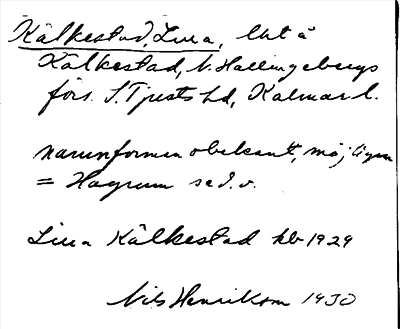 Kälkestad, Lina, lht å
Kälkestad, V. Hallingebergs
förs. S. Tjusts hd, Kalmar l.
namnformen obekant, möjligen
= Hagrum se d. o.
Lina Kälkestad kb 1929
Nils Henrikson 1930